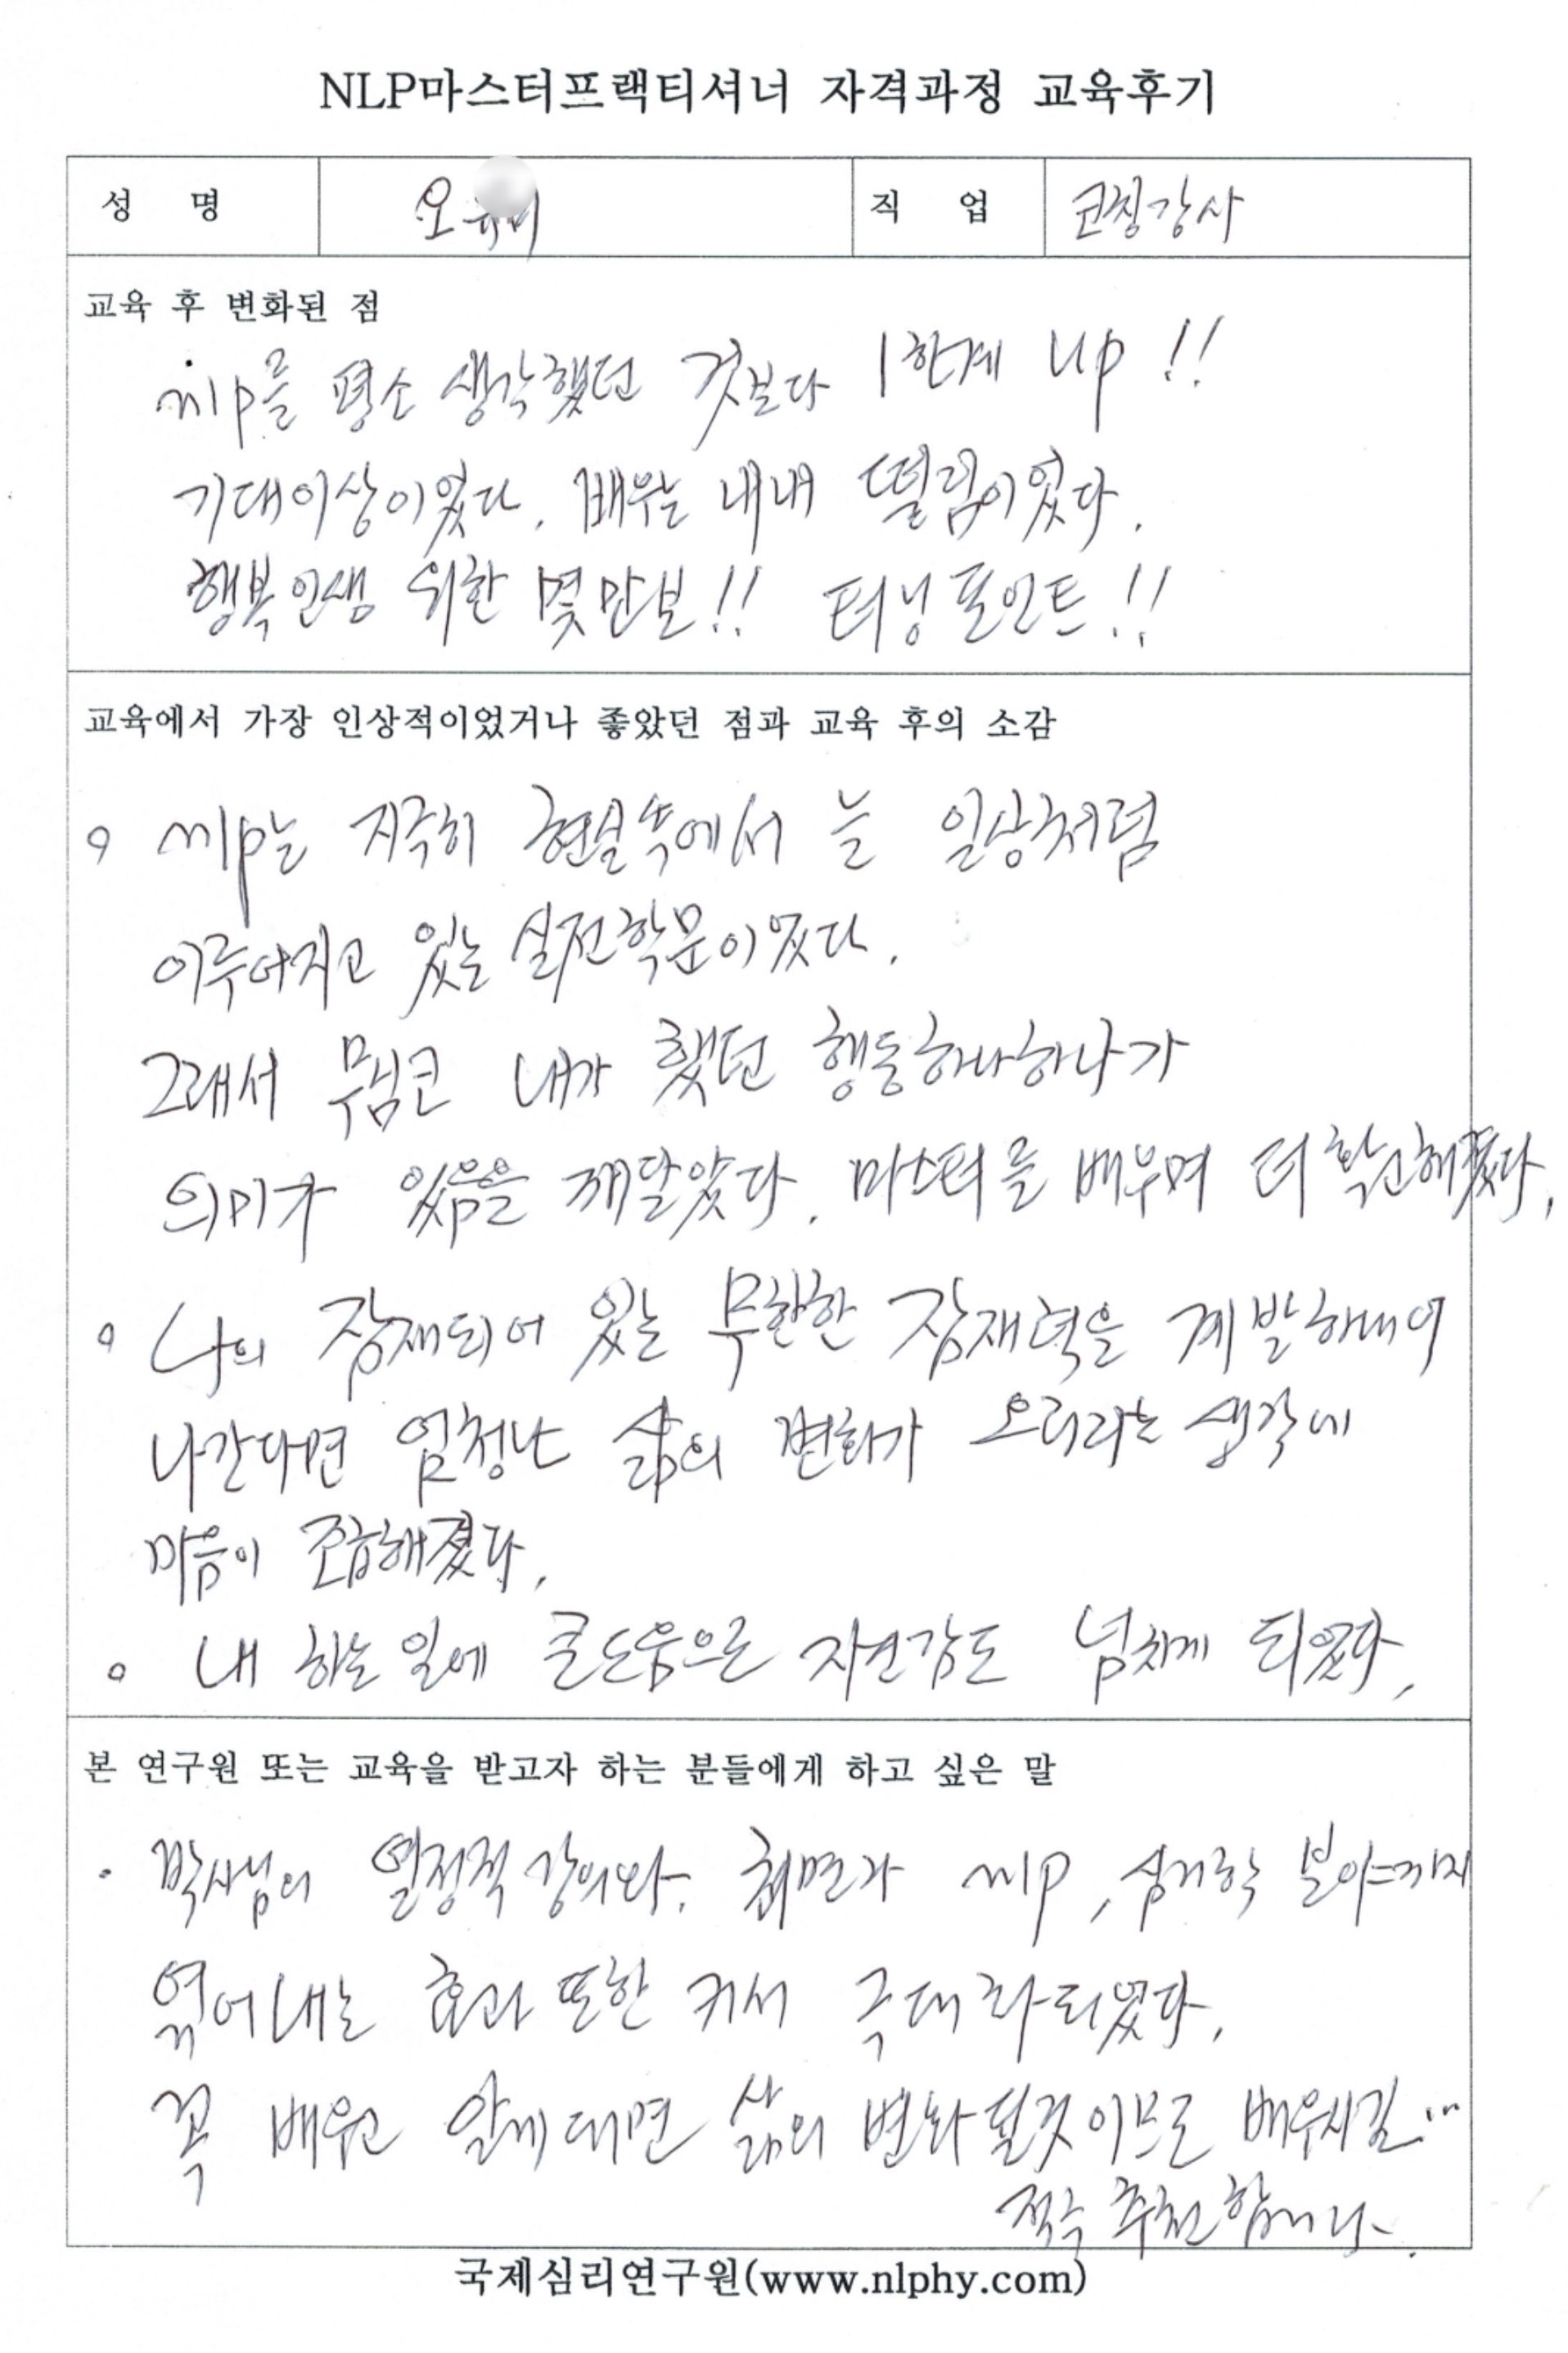 NLP마스터프랙티셔너 자격과정 교육후기
성 명 오 미 직 업 코칭강사
교육 후 변화된 점
nlp를 평소 생각했던 것보다 1한계 up !!
기대이상이었다. 배우는 내내 떨림이었다.
행복인생 위한 몇만보!! 터닝포인트!!
교육에서 가장 인상적이었거나 좋았던 점과 교육 후의 소감
○ nlp는 지극히 현실속에서 늘 일상처럼
이루어지고 있는 실전학문이었다.
그래서 무심코 내가 했던 행동하나하나가
의미가 있음을 깨달았다. 마스터를 배우며 더 확신해졌다.
○ 나의 잠재되어 있는 무한한 잠재력을 계발해내어
나간다면 엄청난 삶의 변화가 오리라는 생각에
마음이 조급해졌다.
○ 내 하는 일에 큰도움으로 자신감도 넘치게 되었다.
본 연구원 또는 교육을 받고자 하는 분들에게 하고 싶은 말
· 박사님의 열정적 강의와. 최면과 nlp, 심리학 분야까지
엮어내는 효과 또한 커서 극대화되었다.
꼭 배우고 알게되면 삶의 변화될것이므로 배우시길...
적극 추천합니다.
국제심리연구원(www.nlphy.com)